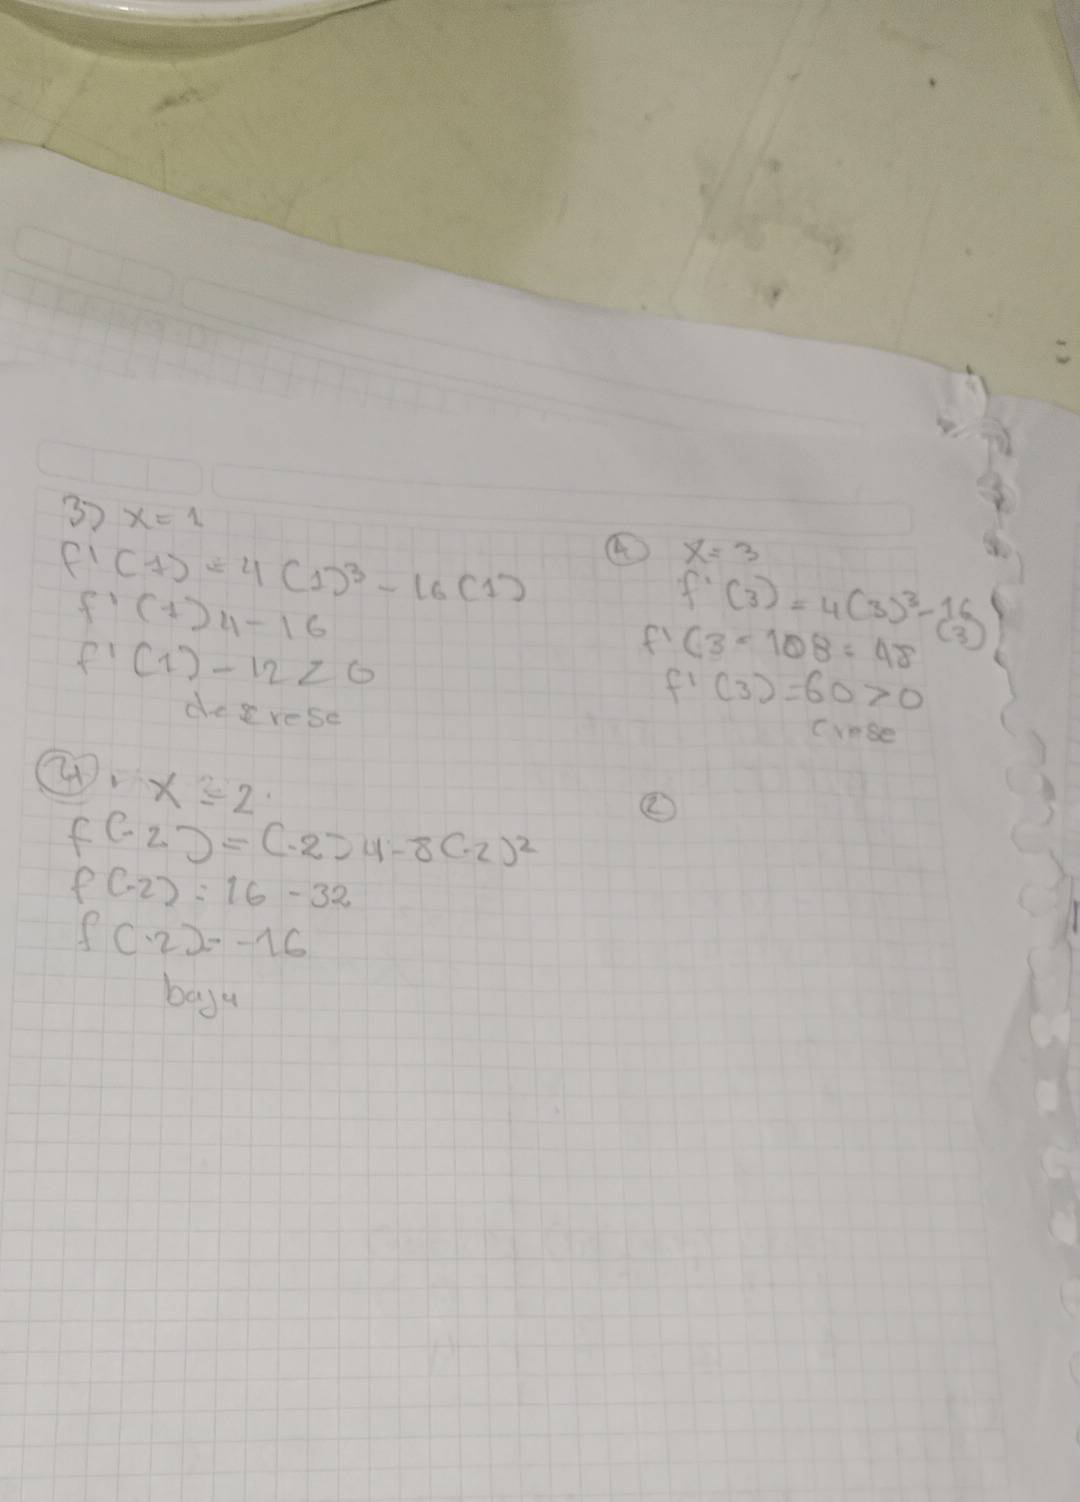 3) x = 1
f'(1) = 4(1)³ - 16(1)
f'(1) 4 - 16
f'(1) - 12 < 0
decrese
④ x = 3
f'(3) = 4(3)³ - 16
(3)
f'(3 = 108 = 48
f'(3) = 60 > 0
crese
④ . x = 2.
f(-2) = (-2)4 - 8(-2)²
f(-2) = 16 - 32
f(-2) = -16
baja
②